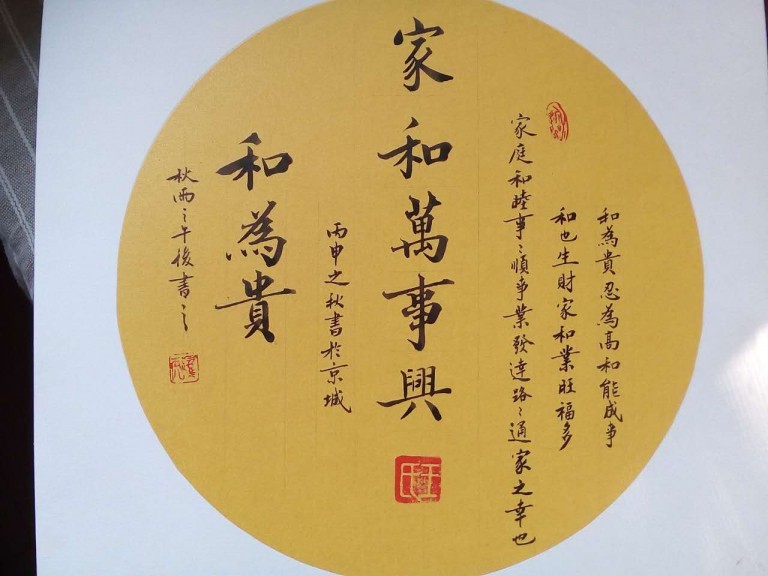 和為貴忍為高和能成事
和也生財家和業旺福多
家庭和睦事〻順事業發達路〻通家之幸也
家和萬事興
丙申之秋書於京城
和為貴
秋雨〻午後書之